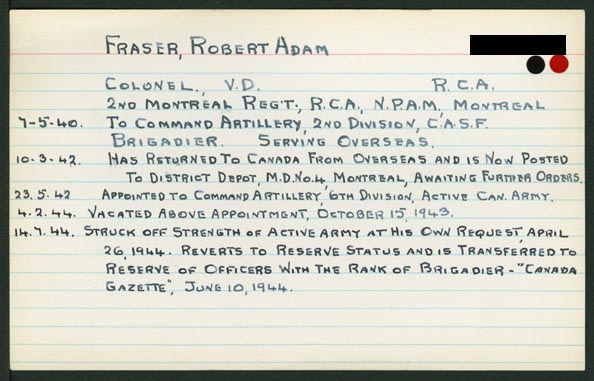 FRASER, ROBERT ADAM
COLONEL., V.D. R.C.A.
2ND MONTREAL REG'T., R.C.A., N.P.A.M., MONTREAL
7-5-40. TO COMMAND ARTILLERY, 2ND DIVISION, C.A.S.F.
BRIGADIER. SERVING OVERSEAS.
10-3-42. HAS RETURNED TO CANADA FROM OVERSEAS AND IS NOW POSTED
TO DISTRICT DEPOT, M.D. NO.4, MONTREAL, AWAITING FURTHER ORDERS.
23.5.42 APPOINTED TO COMMAND ARTILLERY, 6TH DIVISION, ACTIVE CAN. ARMY.
4.2.44. VACATED ABOVE APPOINTMENT, OCTOBER 15, 1943.
14.7.44. STRUCK OFF STRENGTH OF ACTIVE ARMY AT HIS OWN REQUEST, APRIL
26, 1944. REVERTS TO RESERVE STATUS AND IS TRANSFERRED TO
RESERVE OF OFFICERS WITH THE RANK OF BRIGADIER - "CANADA
GAZETTE", JUNE 10, 1944.